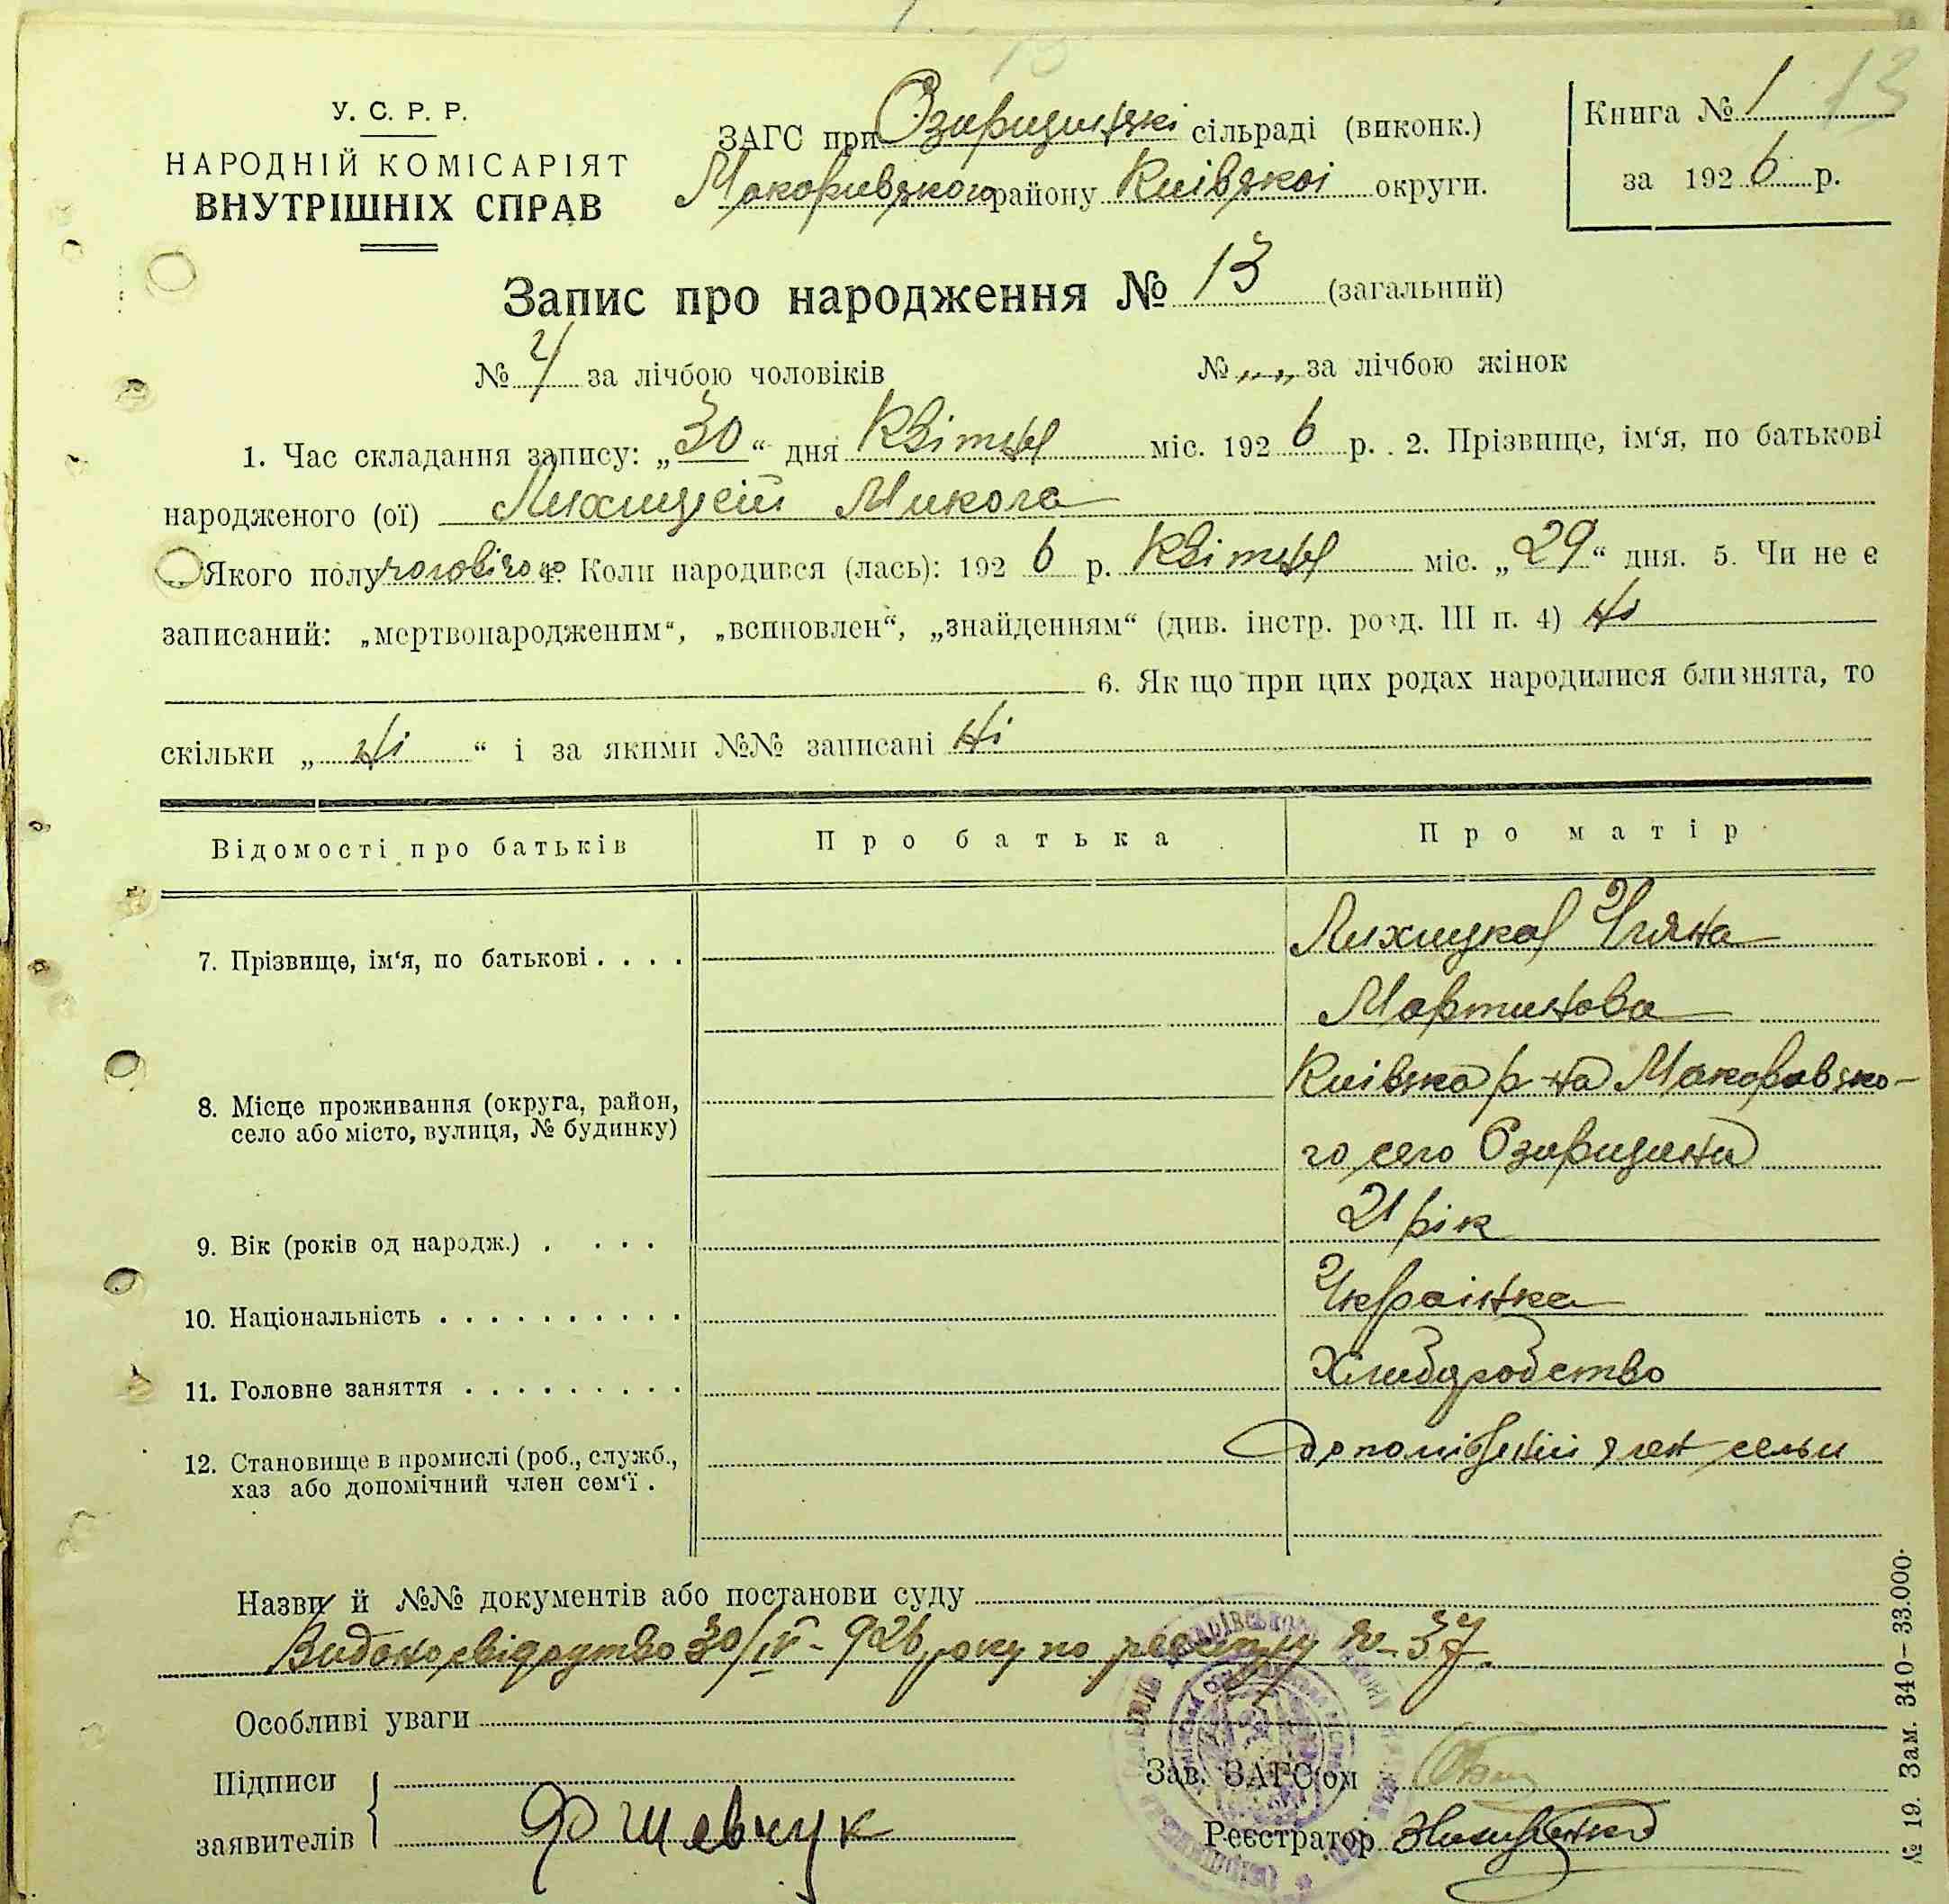 У. С. Р. Р.
НАРОДНІЙ КОМІСАРІЯТ
ВНУТРІШНІХ СПРАВ
ЗАГС при Озирщинські сільраді (виконк.)
Макоривського району Київскоі округи.
Книга № 1 13
за 1926 р.
Запис про народження № 13 (загальний)
№ 4 за лічбою чоловіків № „ за лічбою жінок
1. Час складання запису: „30“ дня Квітня міс. 1926 р. 2. Прізвище, ім‘я, по батькові
народженого (ої) Лихицкій Микола
Якого полу чоловічого 4. Коли народився (лась): 1926 р. Квітня міс. „29“ дня. 5. Чи не є
записаний: „мертвонародженим“, „всиновлен“, „знайденням“ (див. інстр. розд. III п. 4) Ні
6. Якщо при цих родах народилися близнята, то
скільки „ Ні “ і за якими №№ записані Ні
Відомості про батьків Про батька Про матір
7. Прізвище, ім‘я, по батькові . . . . Лихицкая Уляна
Мартинова
8. Місце проживання (округа, район, село або місто, вулиця, № будинку) Київска р-на Макоровско-
го село Озирщина
9. Вік (років од народж.) . . . . 21 рік
10. Національність . . . . . . . . . . Українка
11. Головне заняття . . . . . . . . . Хлибородство
12. Становище в промислі (роб., служб., хаз або допомічний член сем‘ї . допомічний член семьи
Назви й №№ документів або постанови суду
30/IV - 926 року по № 37.
Особливі уваги
Підписи
заявителів
Ф Шевчук
Зав. ЗАГС‘ом
Реєстратор
№ 19. Зам. 340—33.000.